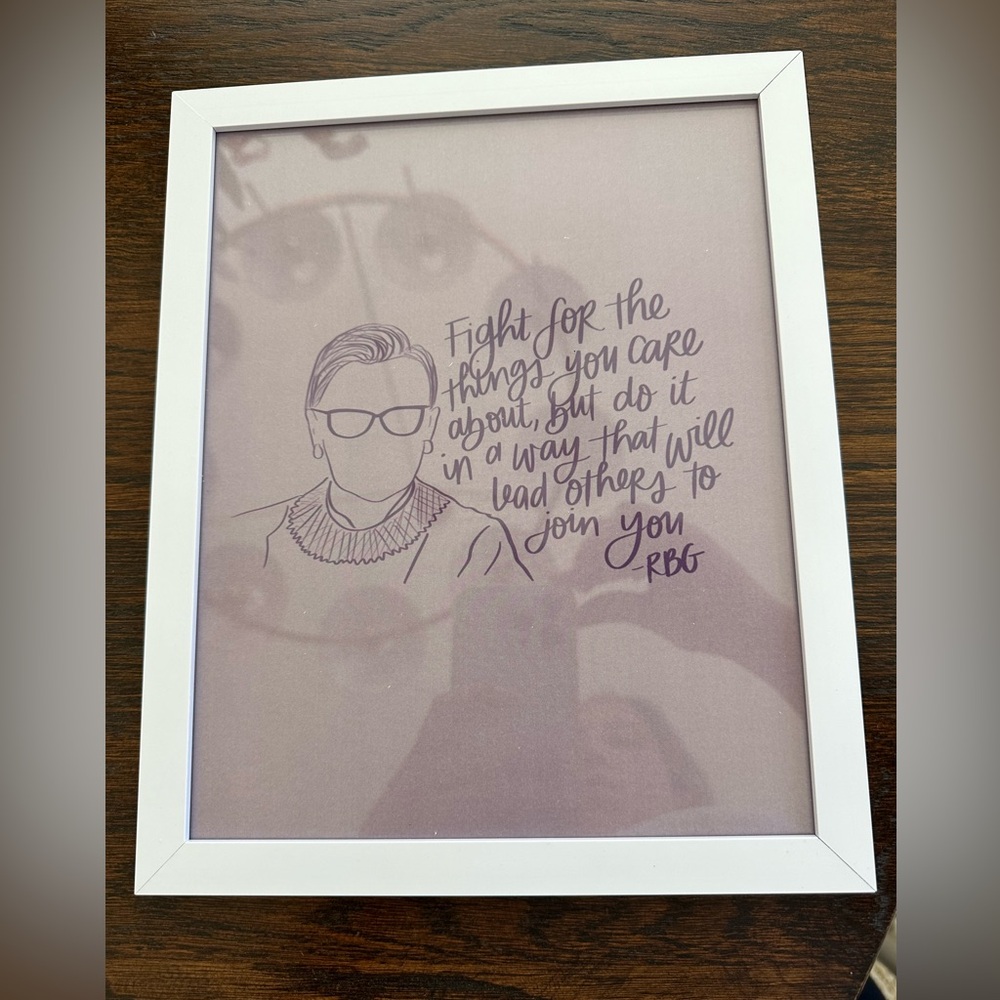 Fight for the
things you care
about, but do it
in a way that will
lead others to
join you
-RBG